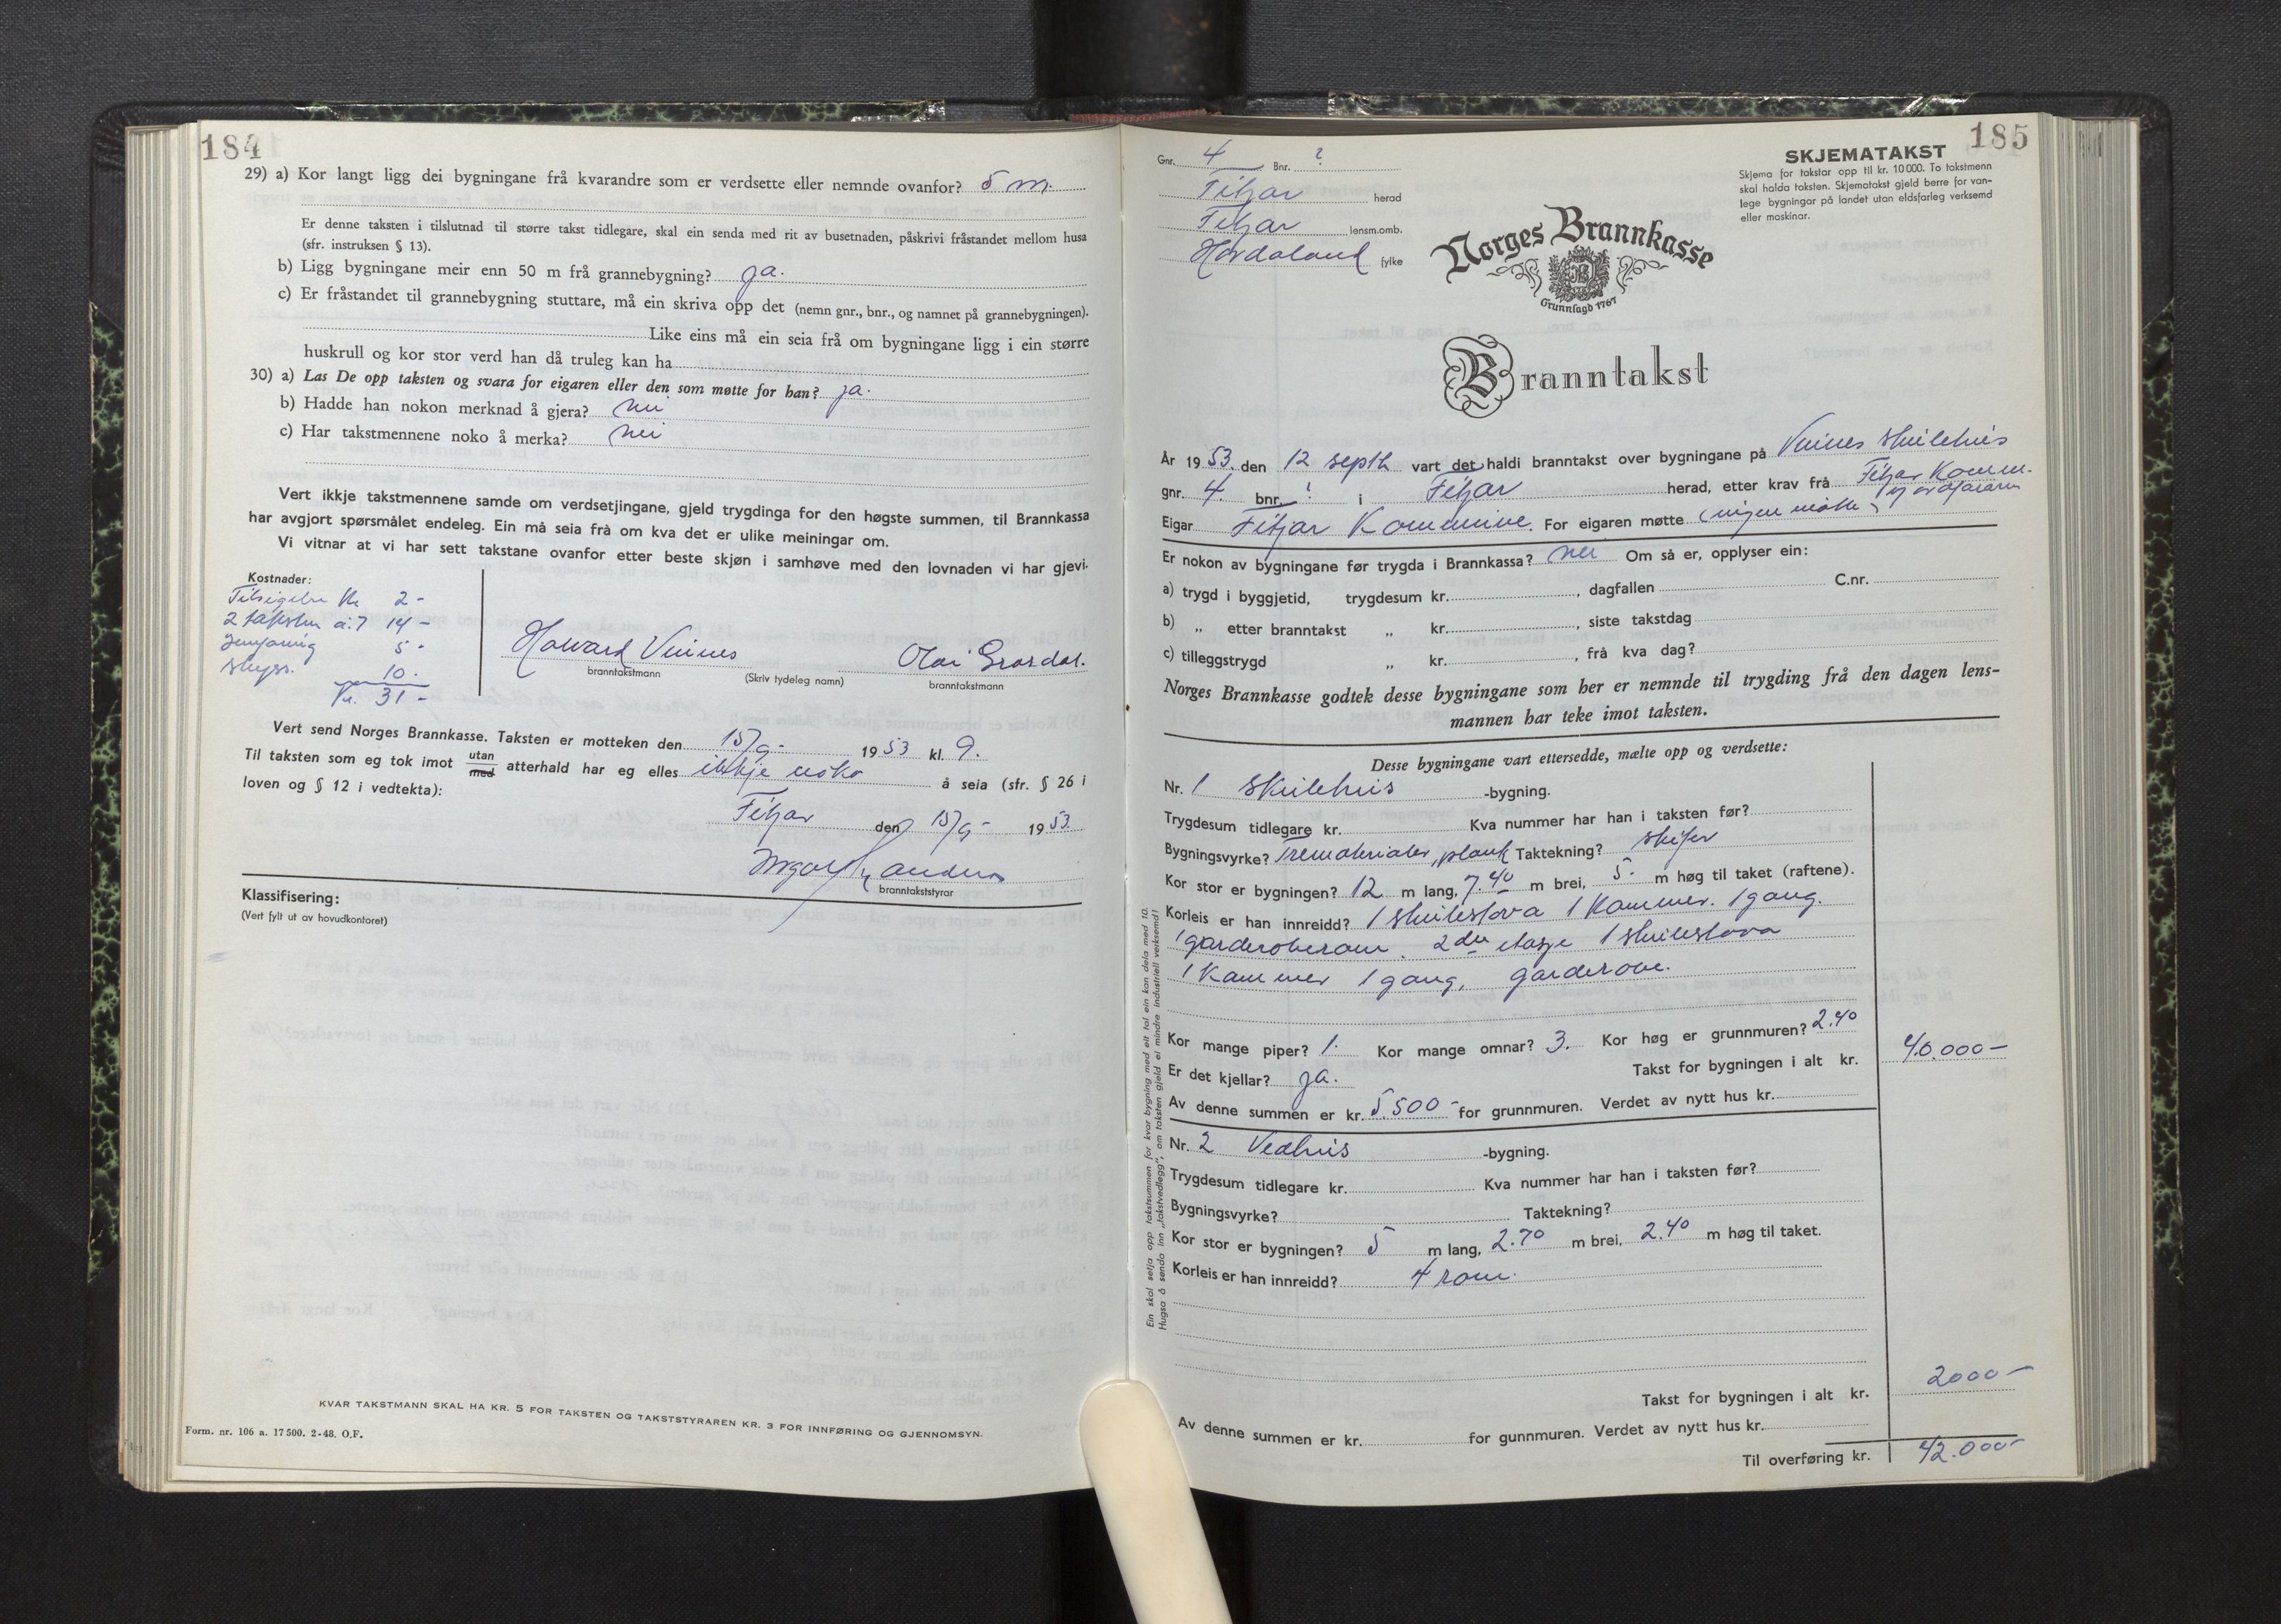 184
29) a) Kor langt ligg dei bygningane frå kvarandre som er verdsette eller nemnde ovanfor? 5 m.
Er denne taksten i tilslutnad til større takst tidlegare, skal ein senda med rit av busetnaden, påskrivi fråstandet mellom husa
(sfr. instruksen § 13).
b) Ligg bygningane meir enn 50 m frå grannebygning? ja.
c) Er fråstandet til grannebygning stuttare, må ein skriva opp det (nemn gnr., bnr., og namnet på grannebygningen).
Like eins må ein seia frå om bygningane ligg i ein større
huskrull og kor stor verd han då truleg kan ha
30) a) Las De opp taksten og svara for eigaren eller den som møtte for han? ja.
b) Hadde han nokon merknad å gjera? nei
c) Har takstmennene noko å merka? nei
Vert ikkje takstmennene samde om verdsetjingane, gjeld trygdinga for den høgste summen, til Brannkassa
har avgjort spørsmålet endeleg. Ein må seia frå om kva det er ulike meiningar om.
Vi vitnar at vi har sett takstane ovanfor etter beste skjøn i samhøve med den lovnaden vi har gjevi.
Kostnader:
Tilsigelse kr 2 -
2 takstm a. 7 14 -
5 -
skyss. 10.
Kr. 31 -
Halvard Vinnes
Olai Grasdal.
branntakstmann
(Skriv tydeleg namn)
branntakstmann
Vert send Norges Brannkasse. Taksten er motteken den 15/9- 1953 kl. 9.
Til taksten som eg tok imot utan
med atterhald har eg elles ikkje noko å seia (sfr. § 26 i
loven og § 12 i vedtekta):
Fitjar den 15/9- 1953.
branntakststyrar
Klassifisering:
(Vert fylt ut av hovudkontoret)
KVAR TAKSTMANN SKAL HA KR. 5 FOR TAKSTEN OG TAKSTSTYRAREN KR. 3 FOR INNFØRING OG GJENNOMSYN.
Form. nr. 106 a. 17 500. 2-48. O.F.
185
Gnr. 4 Bnr. ?
Fitjar herad
Fitjar lensm.omb.
Hordaland fylke
SKJEMATAKST
Skjema for takstar opp til kr. 10 000. To takstmenn
skal halda taksten. Skjematakst gjeld berre for van-
lege bygningar på landet utan eldsfarleg verksemd
eller maskinar.
Norges Brannkasse
Grunnlagd 1767
Branntakst
År 1953. den 12 septb vart det haldi branntakst over bygningane på Vinnes skulehus
gnr. 4. bnr. ? i Fitjar herad, etter krav frå Fitjar Komm.
v/ ordføraren
Eigar Fitjar Kommune. For eigaren møtte ingen møtte
Er nokon av bygningane før trygda i Brannkassa? nei Om så er, opplyser ein:
a) trygd i byggjetid, trygdesum kr. , dagfallen C.nr.
b) „ etter branntakst „ kr. , siste takstdag
c) tilleggstrygd „ kr. , frå kva dag?
Norges Brannkasse godtek desse bygningane som her er nemnde til trygding frå den dagen lens-
mannen har teke imot taksten.
Desse bygningane vart ettersedde, mælte opp og verdsette:
Nr. 1 Skulehus -bygning.
Trygdesum tidlegare kr. Kva nummer har han i taksten før?
Bygningsvyrke? Trematerialer, plank Taktekning? skifer
Kor stor er bygningen? 12 m lang, 7.40 m brei, 5. m høg til taket (raftene).
Korleis er han innreidd? 1 skulestova 1 Kammer. 1 gang.
1 garderoberom. 2den etasje 1 skulestova
1 Kammer 1 gang, garderobe.
Kor mange piper? 1. Kor mange omnar? 3. Kor høg er grunnmuren? 2.40
Er det kjellar? ja. Takst for bygningen i alt kr. 40.000 -
Av denne summen er kr. 5.500 - for grunnmuren. Verdet av nytt hus kr.
Nr. 2 Vedhus -bygning.
Trygdesum tidlegare kr. Kva nummer har han i taksten før?
Bygningsvyrke? Taktekning?
Kor stor er bygningen? 5 m lang, 2.70 m brei, 2.40 m høg til taket.
Korleis er han innreidd? 4 rom.
Takst for bygningen i alt kr. 2000 -
Av denne summen er kr. for gunnmuren. Verdet av nytt hus kr.
Til overføring kr. 42.000 -
Ein skal setja opp takstsummen for kvar bygning med eit tal ein kan dela med 10.
Hugsa å senda inn „takstvedlegg", om taksten gjeld ei mindre industriell verksemd!